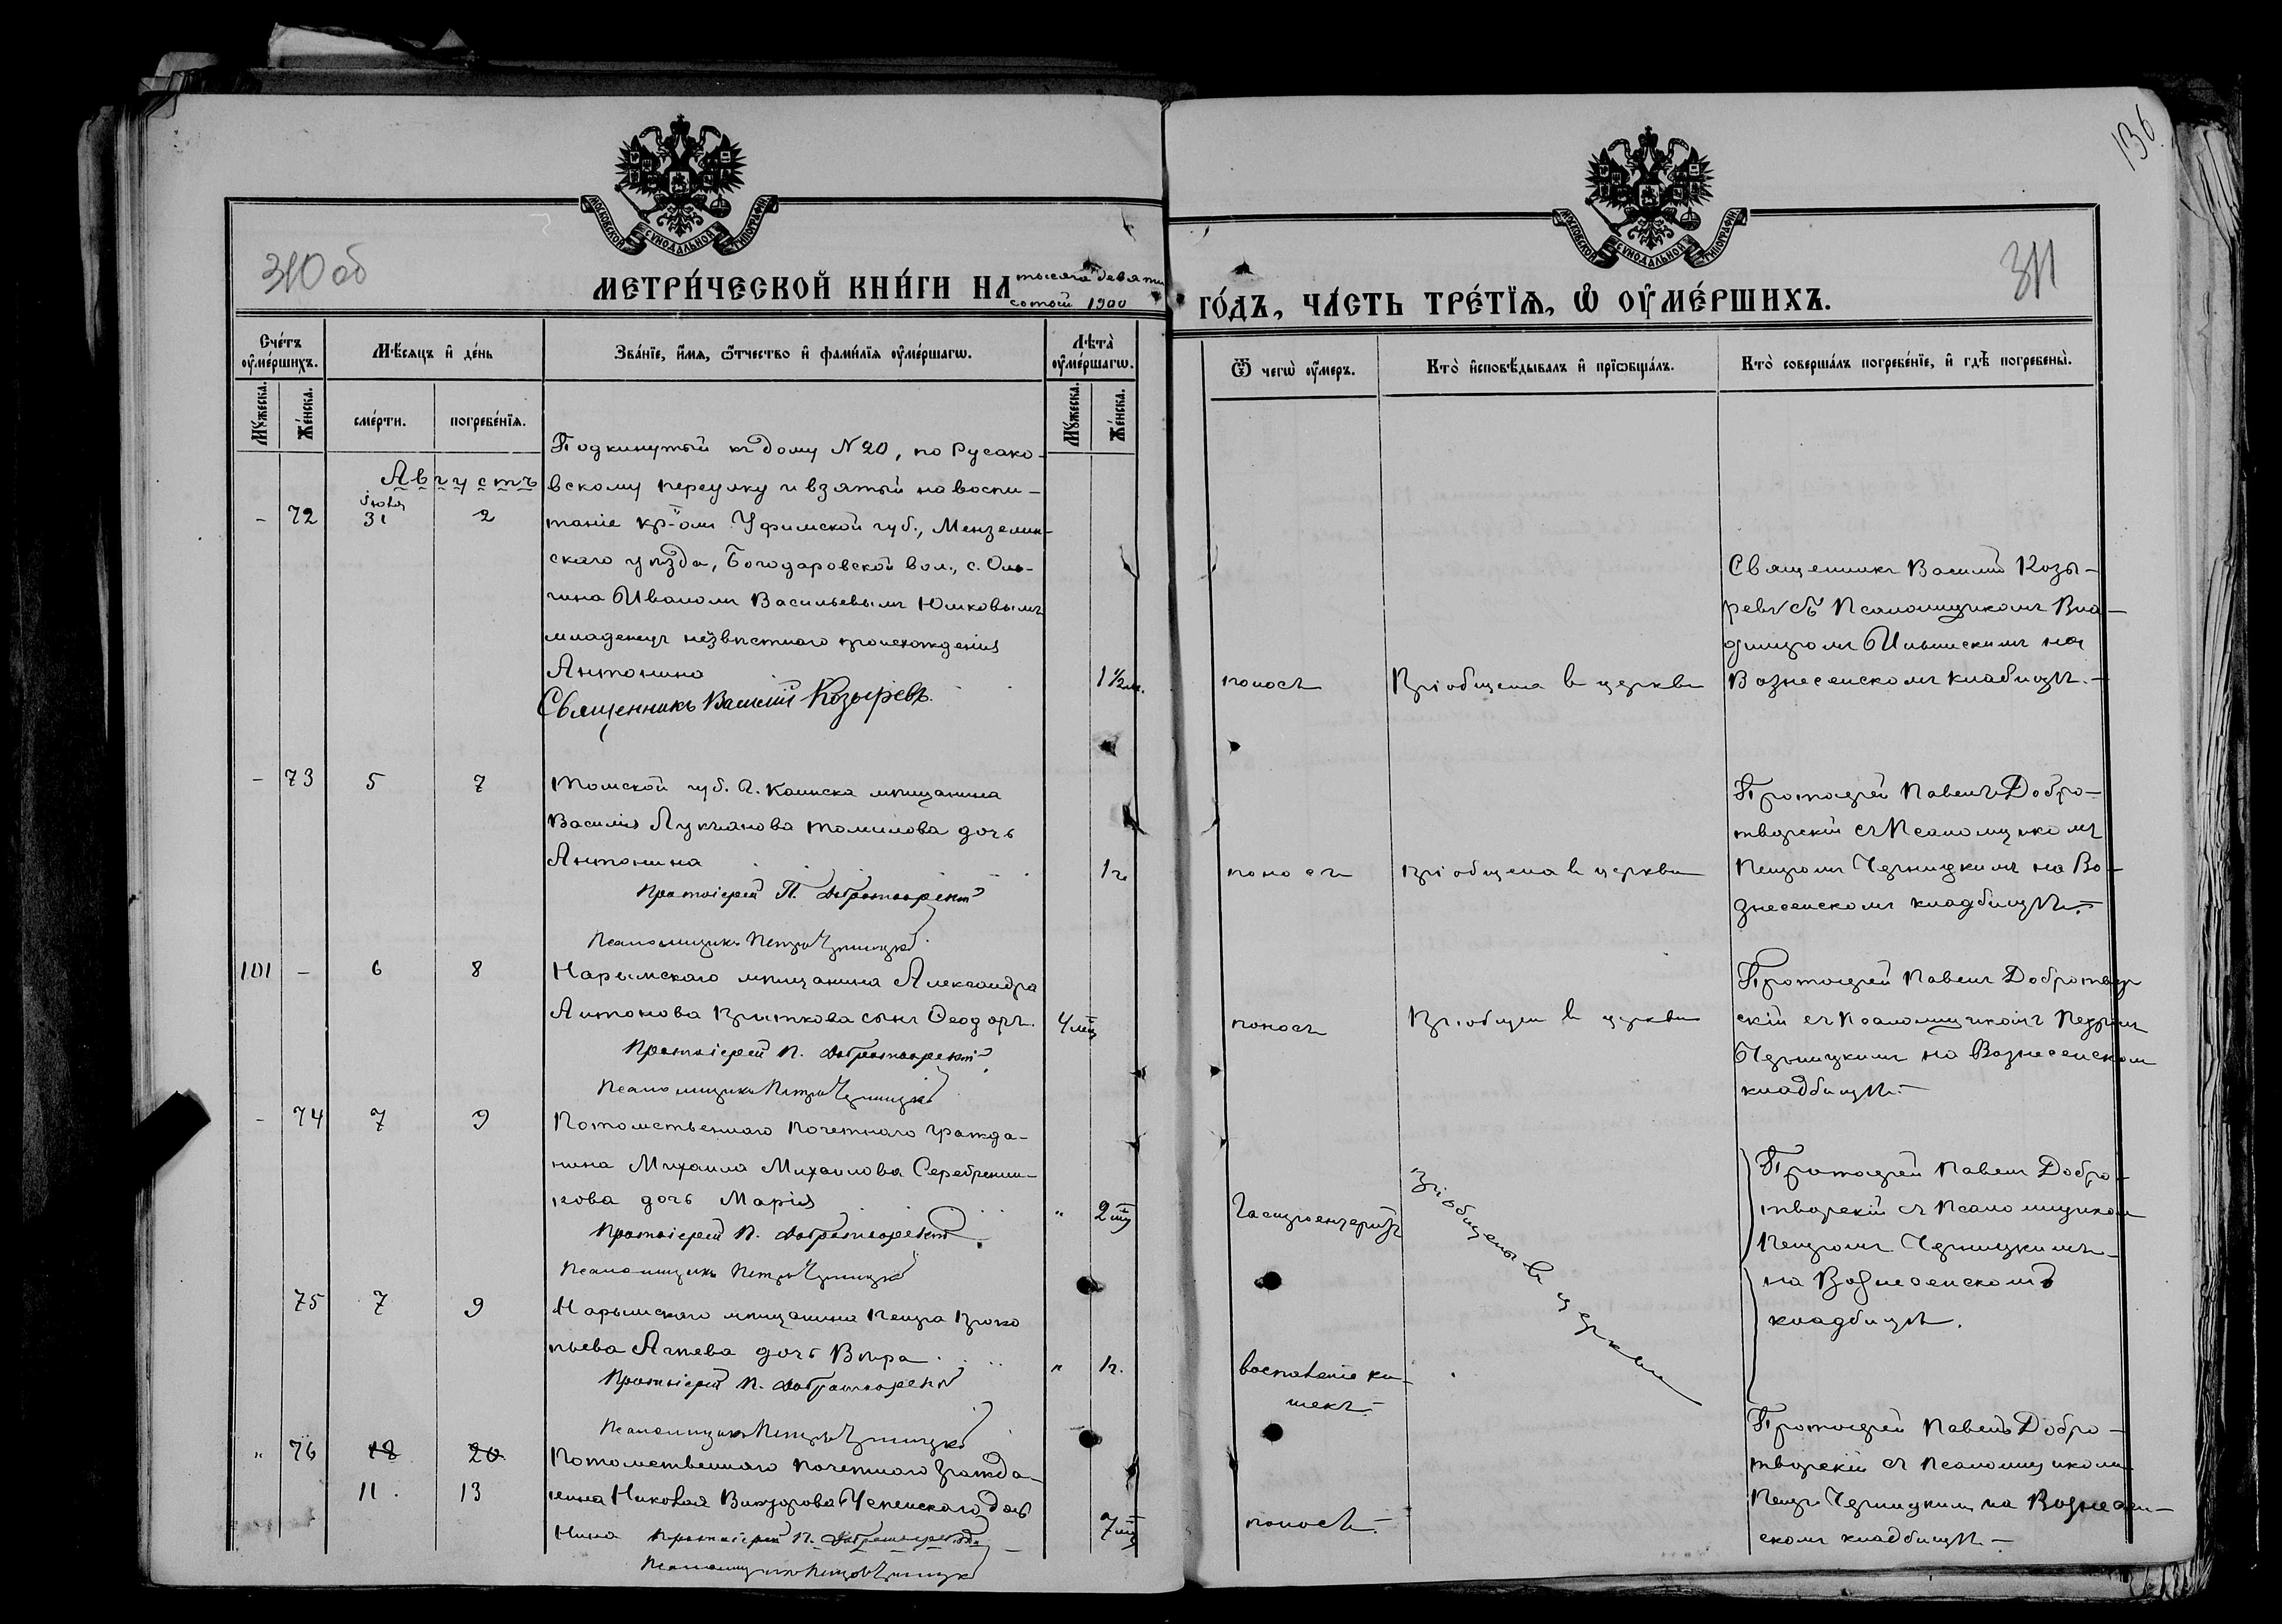 136.
310 об
311
МОСКОВСКОЙ СѴНОДАЛЬНОЙ ТИПОГРАФІИ
МОСКОВСКОЙ СѴНОДАЛЬНОЙ ТИПОГРАФІИ
МЕТРИ́ЧЕСКОЙ КНИ́ГИ НА тысяча девяти
сотый 1900
ГО́ДЪ, ЧА́СТЬ ТРЕ́ТІѦ, Ѡ҆ ОУ҆МЕ́РШИХЪ.
Сче́тъ оу҆ме́ршихъ.
Мꙋ́жеска.
Же́нска.
Мѣ́сѧцъ и҆ де́нь
сме́рти.
погребе́нїѧ.
Зва́нїе, и҆́мѧ, ѻ҆́тчество и҆ фами́лїѧ оу҆ме́ршагѡ.
Лѣта̀ оу҆ме́ршагѡ.
Мꙋ́жеска.
Же́нска.
Ѿ чегѡ̀ оу҆́меръ.
Кто̀ и҆сповѣ́дывалъ и҆ прїѡбща́лъ.
Кто̀ соверша́лъ погребе́нїе, и҆ гдѣ̀ погребены̀.
Августъ
- 72
Іюля
31 2
Подкинутый къ дому N 20, по Русако-
вскому переулку и взятый на воспи-
таніе кр-омъ Уфимской губ., Мензелин-
скаго уѣзда, Богодаровской вол., с.
Иваномъ Васильевымъ Юшковымъ
младенецъ неизвѣстнаго происхожденія
Антонина
1½ м.
Священникъ Василій Козыревъ.
поносъ
Пріобщена въ церкви
Священникъ Василій Козы-
ревъ съ Псаломщикомъ Вла-
диміромъ Ильинскимъ на
Вознесенскомъ кладбищѣ.-
- 73 5 7
Томской губ. г. Каинска мѣщанина
Василія Лукьянова Томилова дочь
Антонина
1 г.
Протоіерей П. Добротворскій
Псаломщикъ Петръ Черницкій
поносъ
пріобщена въ церкви
Протоіерей Павелъ Добро-
творскій съ Псаломщикомъ
Петромъ Черницкимъ на Во-
знесенскомъ кладбищѣ.-
101 - 6 8
Нарымскаго мѣщанина Александра
Антонова Приткова сынъ Ѳеодоръ.
4 мѣц
Протоіерей П. Добротворскій
Псаломщикъ Петръ Черницкій
поносъ
Пріобщенъ въ церкви
Протоіерей Павелъ Добротвор
скій съ Псаломщикомъ Петромъ
Черницкимъ на Вознесенскомъ
кладбищѣ.-
- 74 7 9
Потомственнаго Почетнаго Гражда-
нина Михаила Михаилова Серебренни-
кова дочь Марія
" 2 мц
Протоіерей П. Добротворскій.
Псаломщикъ Петръ Черницкій
Гастроэнтеритъ
Пріобщены въ церкви
Протоіерей Павелъ Добро-
творскій съ Псаломщикомъ
Петромъ Черницкимъ
на Вознесенскомъ
кладбищѣ.
75 7 9
Нарымскаго мѣщанина Петра Проко
пьева Агѣева дочь Вѣра
" 1 г.
Протоіерей П. Добротворскій
Псаломщикъ Петръ Черницкій
воспаленіе ки-
шекъ.
" 76 18 20
11. 13
Потомственнаго почетнаго гражда-
нина Николая Викторова дочь
Нина
7 мц
Протоіерей П. Добротворскій
Псаломщикъ Петръ Черницкій
поносъ.
Протоіерей Павелъ Добро-
творскій съ Псаломщикомъ
Петр. Черницкимъ на Вознесен-
скомъ кладбищѣ.-